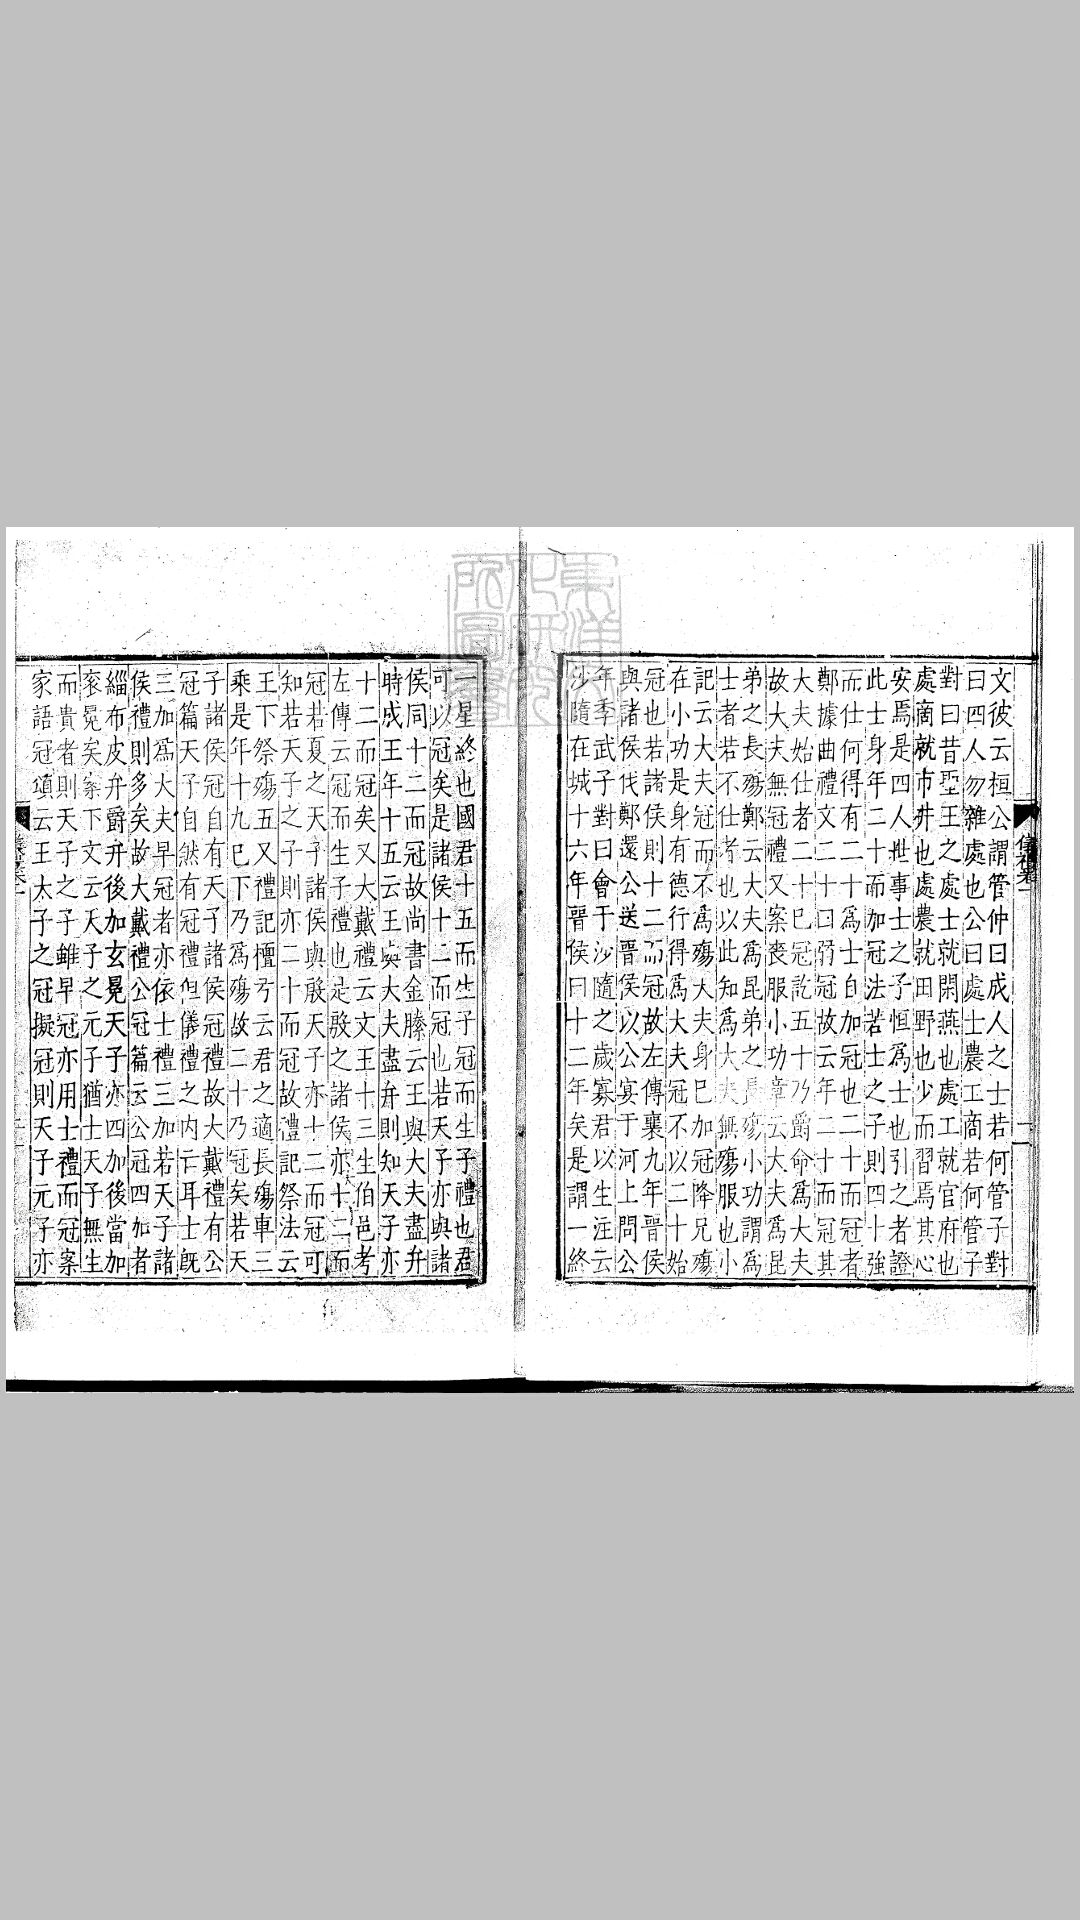 文彼云桓公謂管仲曰成人之士若何管子對
曰四人勿雜處也公曰處士農工商若何管子
對曰昔聖王之處士就閑燕也處工就官府也
處商就市井也處農就田野也少而習焉其心
安焉是四人世事士之子恒爲士也引之者證
此士身年二十而加冠法若士之子則四十強
而仕何得有二十爲士自加冠也二十而冠者
鄭據曲禮文二十曰弱冠故云年二十而冠其
大夫始仕者二十巳冠訖五十乃爵命爲大夫
故大夫無冠禮又案喪服小功章云大夫爲昆
弟之長殤鄭云大夫爲昆弟之長殤小功謂爲
士者若不仕者也以此知爲大夫無殤服也小
記云大夫冠而不爲殤大夫身巳加冠降兄殤
在小功是身有德行得爲大夫冠不以二十始
冠也若諸侯則十二而冠故左傳襄九年晉侯
與諸侯伐鄭還公送晉侯以公宴于河上問公
年季武子對曰會于沙隨之歲寡君以生注云
沙隨在城十六年晉侯曰十二年矣是謂一終
一星終也國君十五而生子冠而生子禮也君
可以冠矣是諸侯十二而冠也若天子亦與諸
侯同十二而冠故尚書金縢云王與大夫盡弁
時成王年十五云王與大夫盡弁則知天子亦
十二而冠矣又大戴禮云文王十三生伯邑考
左傳云冠而生子禮也是殷之諸侯亦十二而
冠若夏之天子諸侯與殷天子亦十二而冠可
知若天子之子則亦二十而冠故禮記祭法云
王下祭殤五又禮記檀弓云君之適長殤車三
乘是年十九巳下乃爲殤故二十乃冠矣若天
子諸侯冠自有天子諸侯冠禮故大戴禮有公
冠篇天子自然有冠禮但儀禮之内亡耳士旣
三加爲大夫早冠者亦依士禮三加若天子諸
侯禮則多矣故大戴禮公冠篇云公冠四加者
緇布皮弁爵弁後加玄冕天子亦四加後當加
衮冕矣案下文云天子之元子猶士天子無生
而貴者則天子之子雖早冠亦用士禮而冠案
家語冠頌云王太子之冠擬冠則天子元子亦